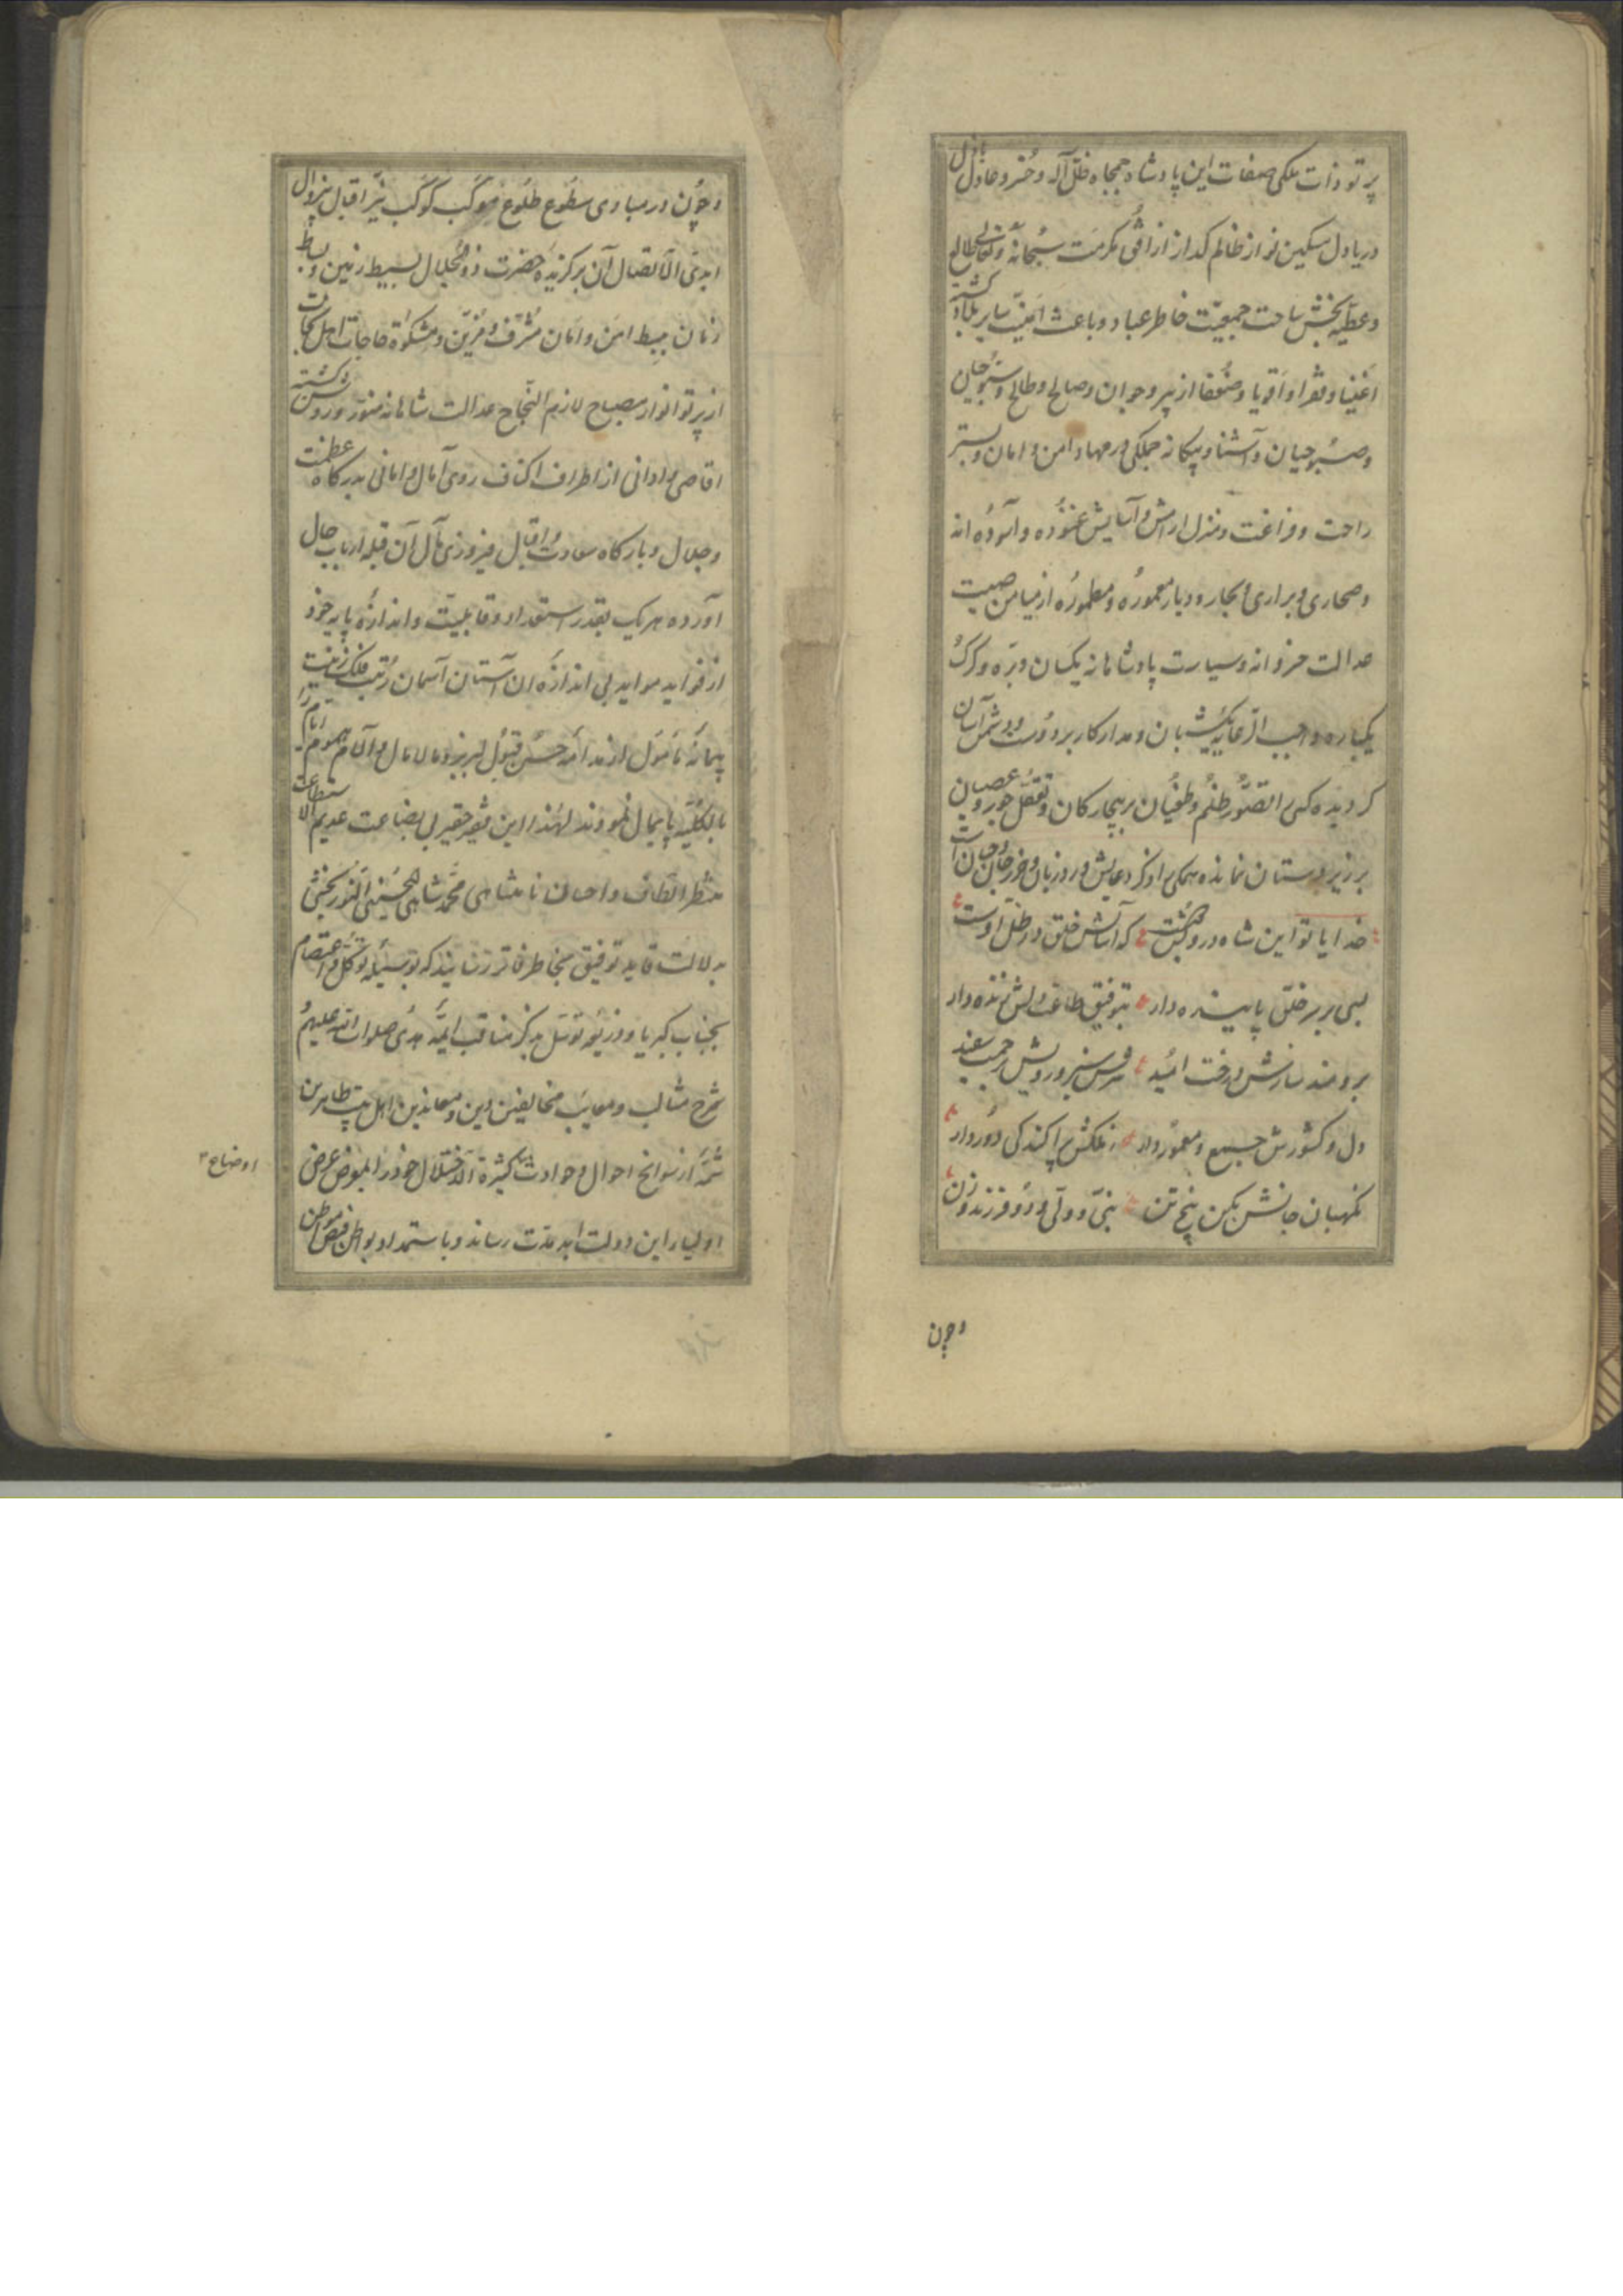 پرتو ذات ملکی صفات این پادشاه جمجاه ظل آله و خسرو عادل باذل
دریادل مسکین نواز ظالم کداز از افق مکرمت سبحانه و تعالی طالع
و عطیه بخش ساحت جمعیت خاطر عباد و باعث امنیت سایر بلاد کشته
اغنیا و فقرا و اقویا و ضعفا از پیر و جوان و صالح و طالح و
و صبوحیان و آشنا و بیکانه جملکی در مهاد امن و امان و بستر
راحت و فراغت و منزل ارامش و آسایش غنوده و آسوده اند
و صحاری و براری و بحار و دیار معموره و مطموره از میامن صیت
عدالت خسروانه و سیاست پادشاهانه یکسان و بره و کرک
یکباره واجب الرعایه شبان و مدار کار بر دوست و دشمن آسان
کردیده کسی را تصور ظلم و طغیان بر بیچارکان و تعقل جور و عصیان
بر زیردستان نمانده همکی را ذکر دعایش ورد زبان و حرز جان و جنان است
خدایا تو این شاه درویش دوست که آسایش خلق در ظل اوست
بسی بر سر خلق پاینده دار بتوفیق طاعت دلش زنده دار
برومند دارش درخت امید سرش سبز و رویش برحمت سفید
دل و کشورش جمع و معمور دار ز ملکش پراکندکی دور دار
نکهبان جانش بکن پنج تن نبی و ولی و دو فرزند و زن
و چون
و چون در مبادی سطوع طلوع موکب کوکب نیر اقبال بیزوال
ابدی الاتصال آن برکزیده حضرت ذو الجلال بسیط زمین و بساط
زمان ببسط امن و امان مشرف و مزین و مشکوة حاجات اهل
از پرتو انوار مصباح لازم النجاح عدالت شاهانه منور و روشن کشته
اقاصی و ادانی از اطراف اکناف روی آمال و امانی بدرکاه عظمت
و جلال و بارکاه سعادت و اقبال فیروزی مآل آن قبله ارباب حال
آورده هر یک بقدر استعداد و قابلیت و اندازه پایه خود
از فواید موایدبی اندازه ان آستان آسمان رتبت فلک زینت
پیمانه مأمول از مدامه حسن قبول لبریز و مالامال و آلام هموم ایام را
بالکلیه پایمال نمودند لهذا این فقیر حقیر بی بضاعت عدیم الاستطاعت
منتظر الطاف و احسان نامتناهی محمد شاهی الحسینی النوربخشی
بدلالت قاید توفیق بخاطر فاتر رسانید که بوسیله توکل و اعتصام
بجناب کبریا و ذریعه توسل بذکر مناقب ایمه هدی صلوات الله علیهم
شرح مثالب و معایب مخالفین دین و معاندین اهل بیت طاهرین
شمه از سوانخ احوال و حوادث کثیرة الاختلال خود را بموقف عرض
اولیاء این دولت ابد مدت رساند و باستمداد بواطن فیض مواطن
اوضاع